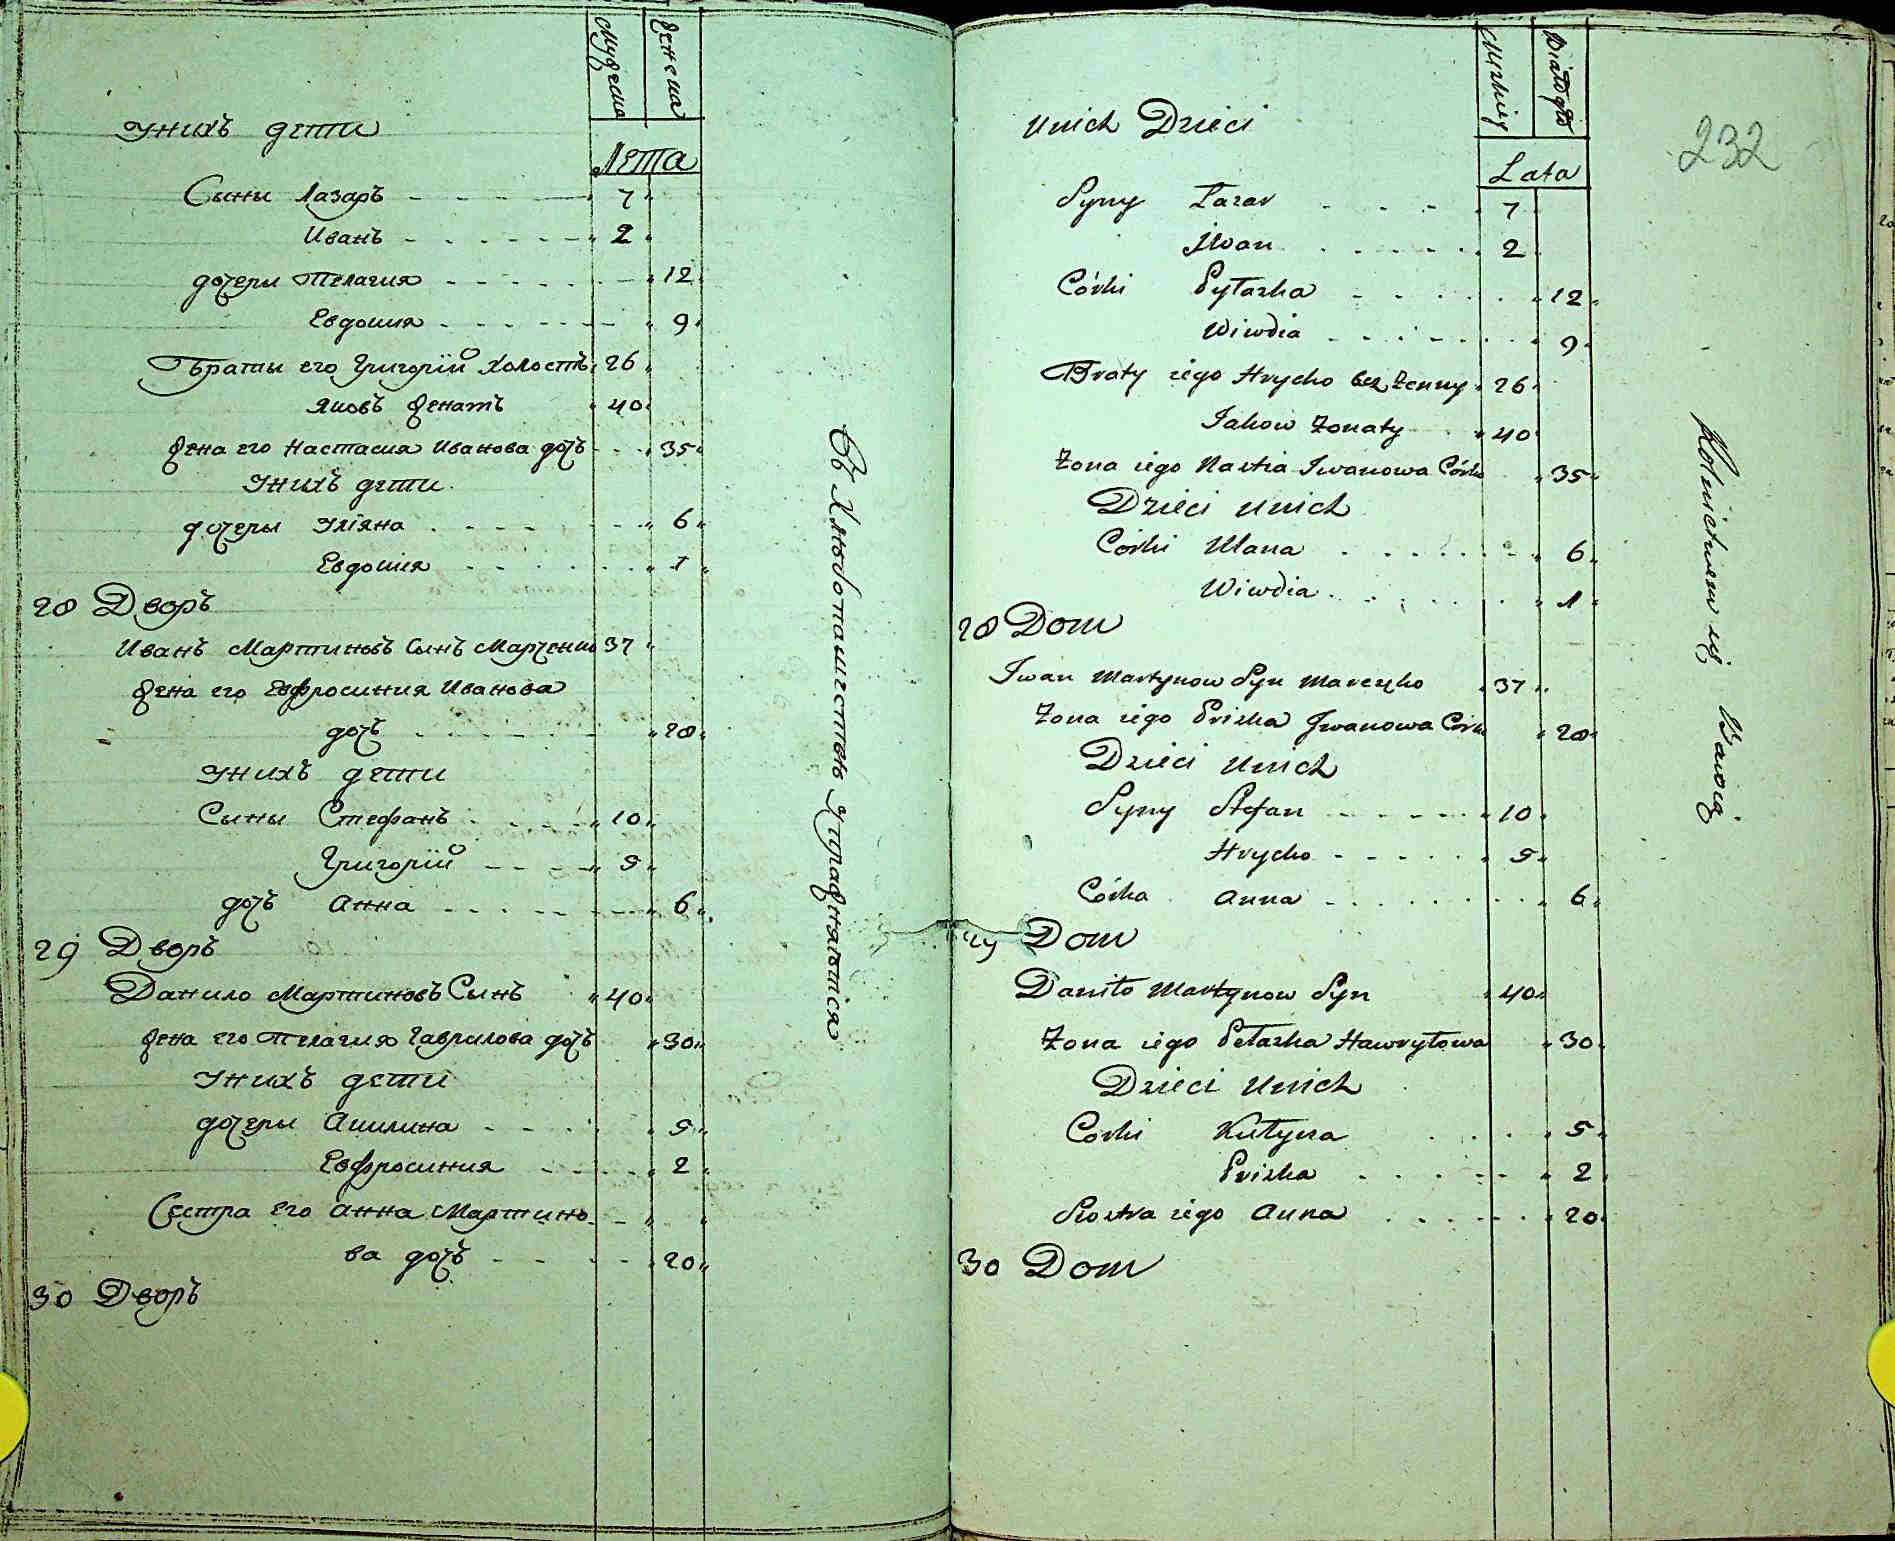 Мужеска
Женска
У нихъ дети
Лета
Сыны Лазаръ 7
Иванъ 2
дочеры Пелагия 12
Евдокия 9
Браты его Григорїй холостъ 26
Яковъ женатъ 40
жена его Настасия Иванова дочь 35
У нихъ дети
дочеры Улїяна 6
Евдокия 1
28 Дворъ
Иванъ Мартиновъ Сынъ Марченко 37
жена его Евфросиния Иванова
дочь 28
У нихъ дети
Сыны Стефанъ 10
Григорїй 5
дочь Анна 6
29 Дворъ
Данило Мартиновъ Сынъ 40
жена его Пелагия Гаврилова дочь 30
У нихъ дети
дочеры Акилина 5
Евфросиния 2
Сестра его Анна Мартино
ва дочь 20
30 Дворъ
Въ Хлебопашестве Упражняются
232
Unich Dzieci
Lata
Syny Łazar 7
Iwan 2
Córki Pyłaszka 12
Wiwdia 9
Braty iego Hrycko bez Żenny 26
Jakow Żonaty 40
Żona iego Nastia Iwanowa Córka 35
Dzieci Unich
Corki Ulana 6
Wiwdia 1
28 Dom
Iwan Martynow Syn Marczko 37
Żona iego Priska Jwanowa Córka 28
Dzieci Unich
Syny Stefan 10
Hrycko 5
Córka Anna 6
29 Dom
Daniło Martynow Syn 40
Żona iego Pełaszka Hawryłowa 30
Dzieci Unich
Corki Kułyna 5
Priska 2
Siostra iego Anna 20
30 Dom
Rolnictwem się Bawią